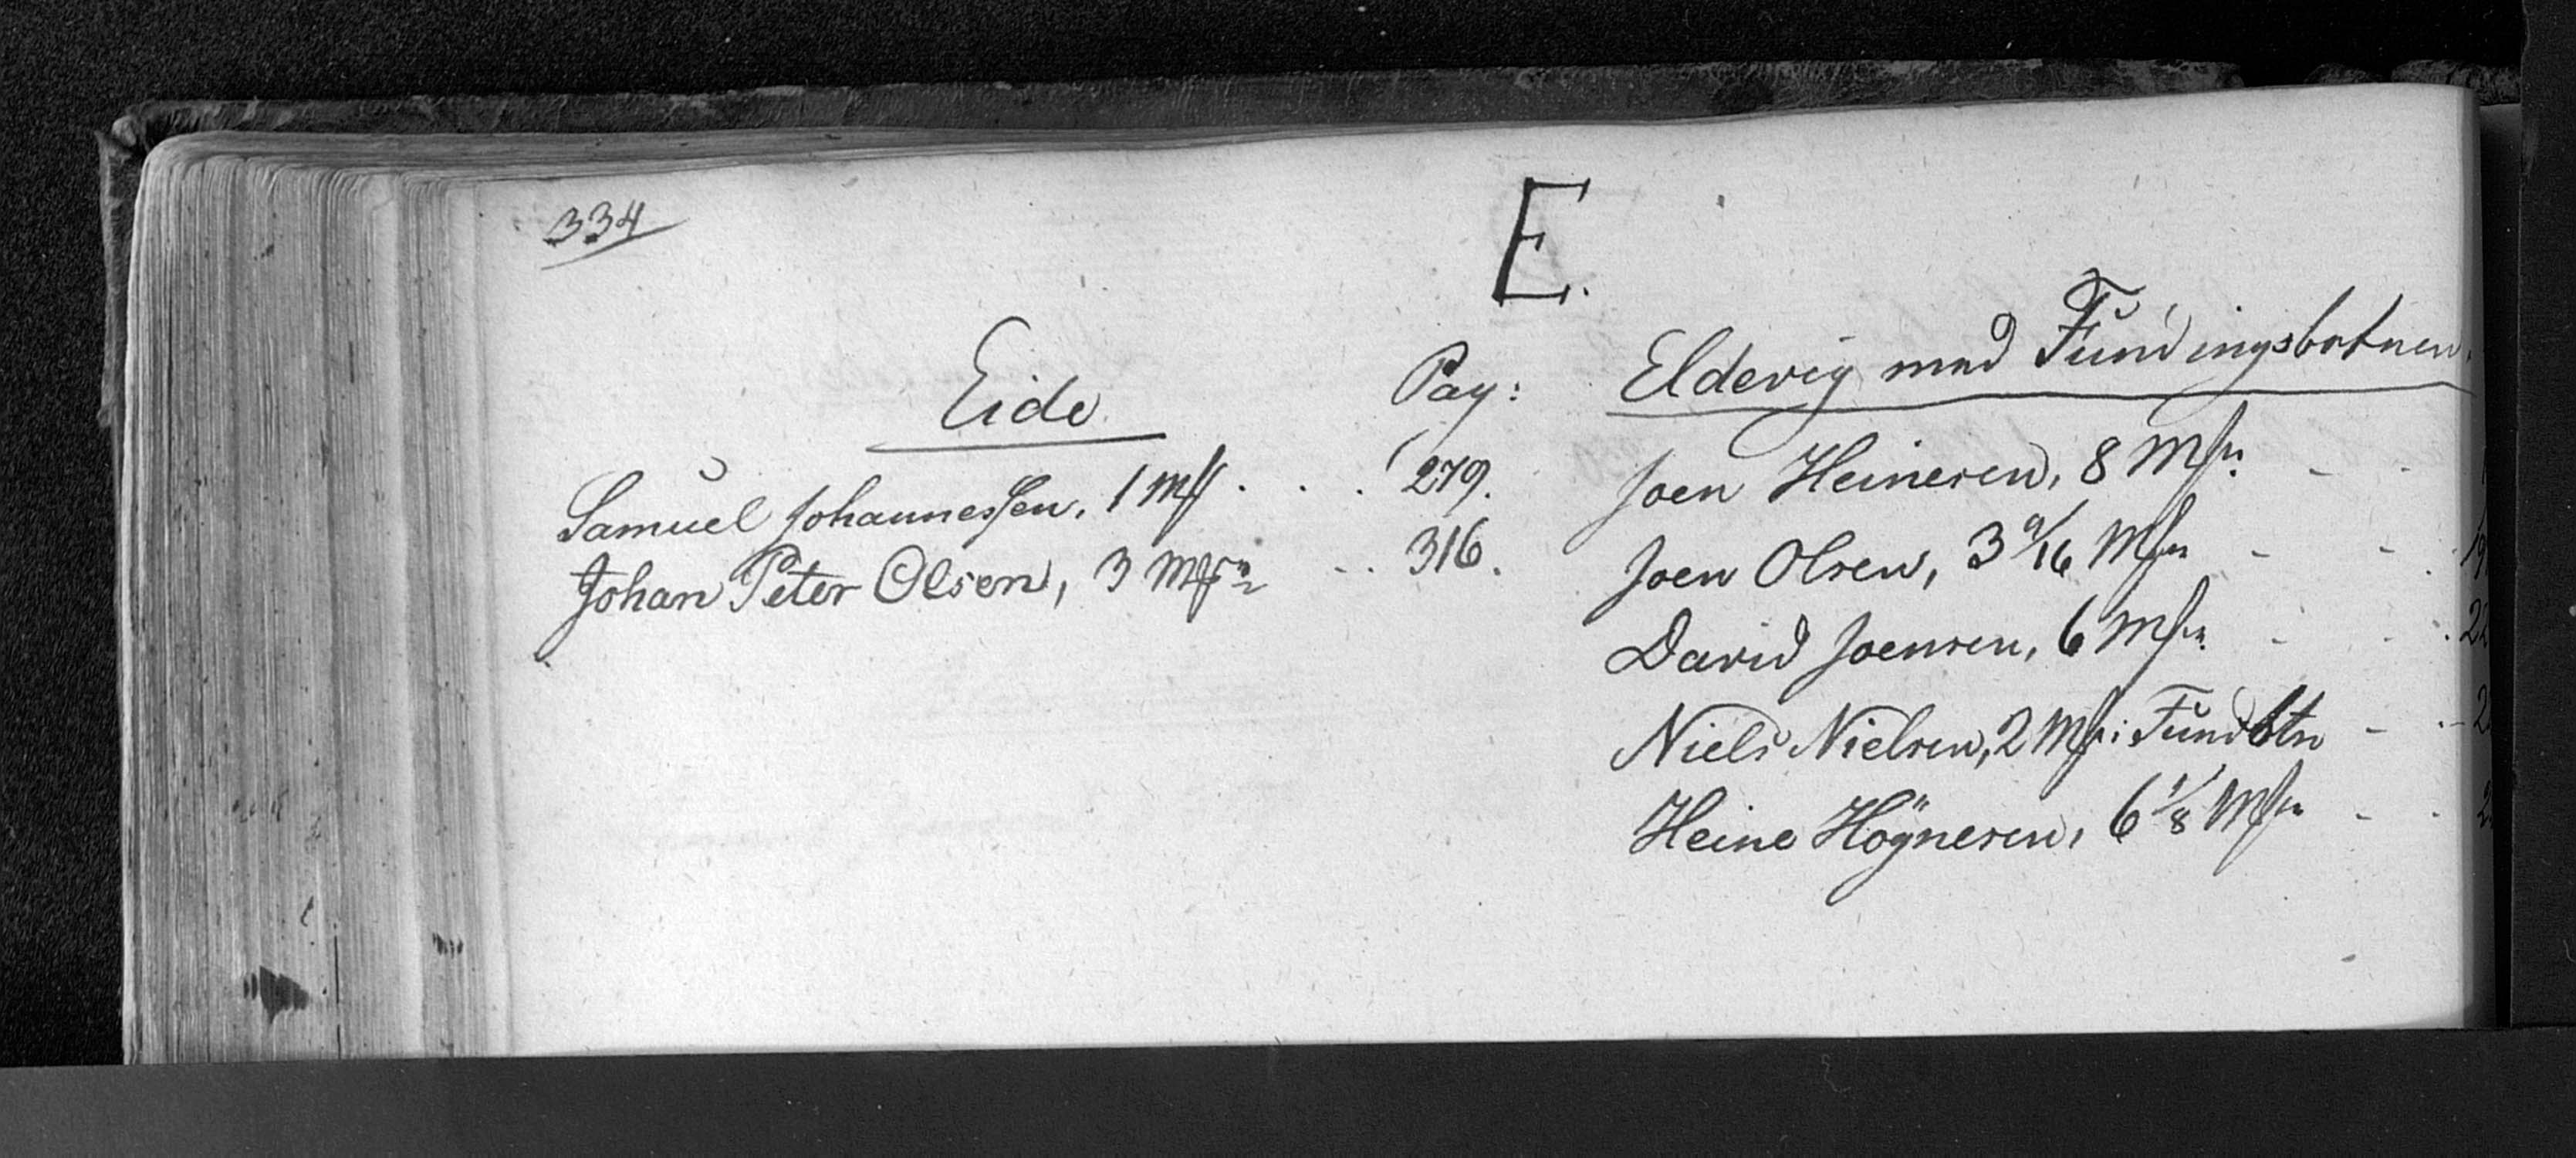 334
E.
Eide
Pag:
Samuel Johannessen, 1 Mf . . . 279.
Johan Peter Olsen, 3 Mfrn . . 316.
Eldevig med Fundingsbotnen.
Joen Heinesen, 8 Mfn - -
Joen Olsen, 3 9/16 Mfn - -
David Joensen, 6 Mfn - -
Niels Nielsen, 2 Mfn i Fundbtn - -
Heine Högnesen, 6 1/8 Mfn - -